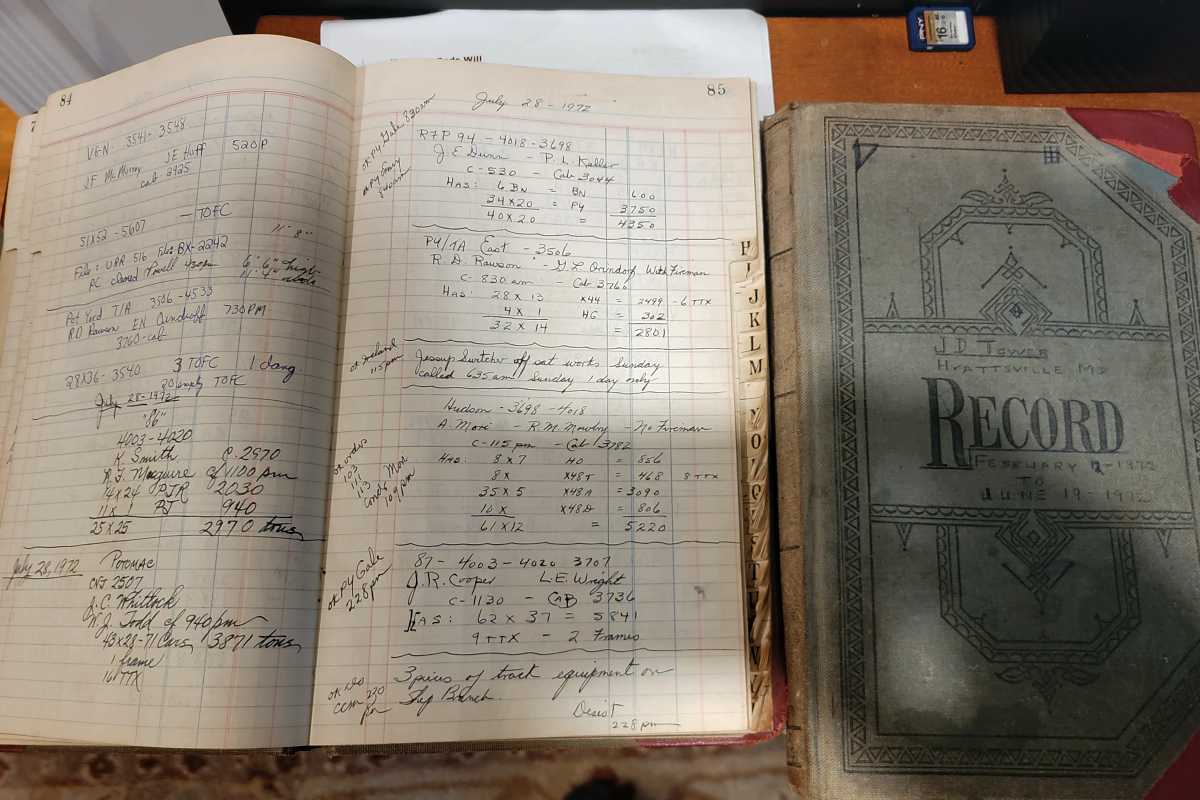 84
VEN. 3541-3548
JF McMurray JE Huff 520P
cab 2925
51X52-5607 - TOFC
File: UPR 516 File: BX-2242 11'8"
PC closed Powell 430pm 6'6" high
11'4" wide
Pot Yard T/A 3506-4533
RD Rawson EN Orndroff 730PM
3760-cab
28X36-3540 3 TOFC 1 dang
20 empty TOFC
July 28-1972
"86"
4003-4020
K Smith C.2970
R.F. Macguire of 1100 pm
14X24 PJR 2030
11X1 PJ 940
25X25 2970 tons
July 28, 1972 POTOMAC
CNJ 2507
J.C. Whitlock
W.J. Todd of 940pm
43X28-71 Cars, 3871 tons,
1 frame
16 TTX
85
July 28-1972
OK Py Gale 820am
RFP 94-4018-3698
J.E. Dunn - P.L. Keller
C-530 - Cab 3044
HAS: 6 BN = BN 600
34X20 = PY 3750
40X20 = 4350
PY/TA East-3506
R.D. Rawson - G.L. Orndorf With Fireman
C-830 am - Cab 3760
HAS: 28X13 X44 = 2499 -6 TTX
4X1 HG = 302
32X14 = 2801
OK Ireland
115pm
Jessup Switcher off sat works Sunday
called 635am Sunday 1 day only
Hudson-3698-4018
A. More - R.M. Mowbry - No Fireman
C-115 pm - Cab 3782
HAS: 8X7 HO = 856
8X X48T = 468 8 TTX
35X5 X48A = 3090
10X X48D = 806
61X12 = 5220
OK orders
103
111
113
Mon
109pm
87-4003-4020 3707
J.R. Cooper L.E. Wright
C-1130 - CAB 3736
HAS: 62X37 = 5841
9 TTX - 2 Frames
OK PY Gale
228pm
3 pieces of track equipment on
Branch.
230
pm
228pm
H
I
J
K
L
M
O
T
W
Y
PNY
16
J.D. TOWER
HYATTSVILLE MD
RECORD
FEBRUARY 12-1972
TO
JUNE 19-1972